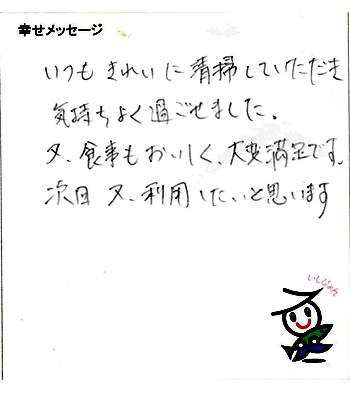 幸せメッセージ
いつも きれいに 清掃していただき
気持ちよく過ごせました。
又、食事もおいしく、大変満足です。
次回 又、利用したいと思います
いしぴょん